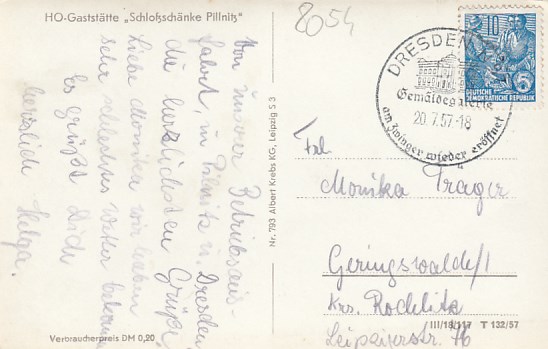 HO-Gaststätte „Schloßschänke Pillnitz"
8054
Von unsrer Betriebsaus-
fahrt, in Pilnitz u. Dresden
die herzlichsten Grüße.
Liebe Monika wir haben
sehr schlechtes Wetter
Es grüßt Dich
herzlich Helga.
Verbraucherpreis DM 0,20
Nr. 793 Albert Krebs KG, Leipzig S 3
DRESDEN
Gemäldegalerie
20.7.57-18
am Zwinger wieder eröffnet
10
5
DEUTSCHE
DEMOKRATISCHE REPUBLIK
Frl.
Monika Trager
Geringswalde/
Krs. Rochlitz
Leipzigerstr. 16
III/18/117 T 132/57